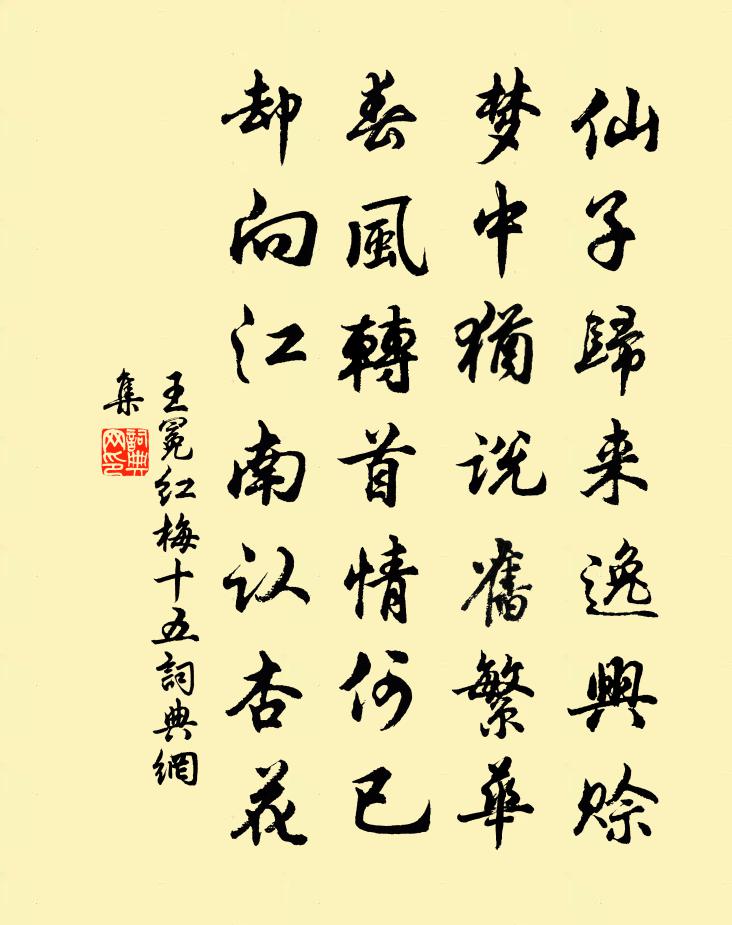 仙子歸来逸興賒
梦中猶説舊繁華
春風轉首情何已
却向江南认杏花
王冕红梅十五詞典網
集
詞典网印